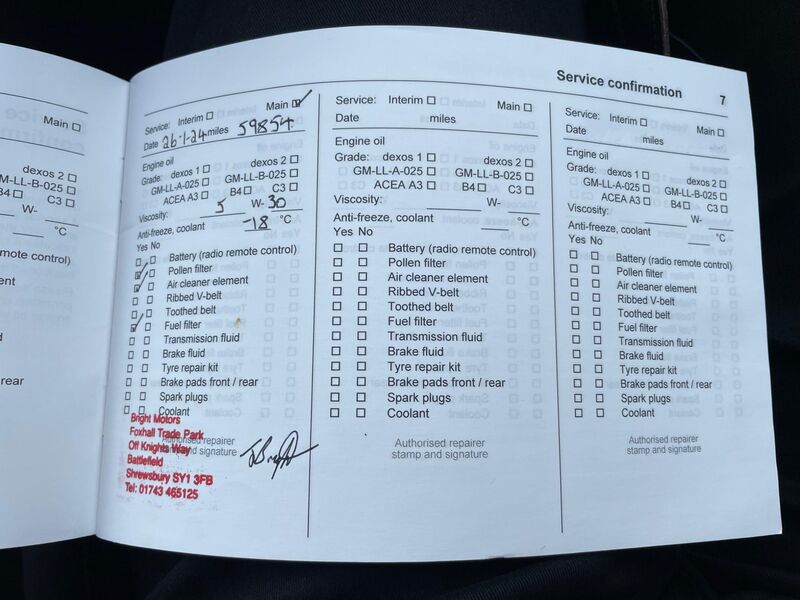 Service confirmation 7
Main
2
GM-LL-B-025
B4 C3
W-
°C
remote control)
ent
rear
Service: Interim Main ✓
Date 26-1-24 miles 59854
Engine oil
Grade: dexos 1 dexos 2
GM-LL-A-025 GM-LL-B-025
ACEA A3 B4 C3
Viscosity: 5 W- 30
Anti-freeze, coolant -18 °C
Yes No
Battery (radio remote control)
Pollen filter
Air cleaner element
Ribbed V-belt
Toothed belt
Fuel filter
Transmission fluid
Brake fluid
Tyre repair kit
Brake pads front / rear
Spark plugs
Coolant
Authorised repairer
stamp and signature
Bright Motors
Foxhall Trade Park
Off Knights Way
Battlefield
Shrewsbury SY1 3FB
Tel: 01743 465125
Service: Interim Main
Date miles
Engine oil
Grade: dexos 1 dexos 2
GM-LL-A-025 GM-LL-B-025
ACEA A3 B4 C3
Viscosity: W-
Anti-freeze, coolant °C
Yes No
Battery (radio remote control)
Pollen filter
Air cleaner element
Ribbed V-belt
Toothed belt
Fuel filter
Transmission fluid
Brake fluid
Tyre repair kit
Brake pads front / rear
Spark plugs
Coolant
Authorised repairer
stamp and signature
Service: Interim Main
Date miles
Engine oil
Grade: dexos 1 dexos 2
GM-LL-A-025 GM-LL-B-025
ACEA A3 B4 C3
Viscosity: W-
Anti-freeze, coolant °C
Yes No
Battery (radio remote control)
Pollen filter
Air cleaner element
Ribbed V-belt
Toothed belt
Fuel filter
Transmission fluid
Brake fluid
Tyre repair kit
Brake pads front / rear
Spark plugs
Coolant
Authorised repairer
stamp and signature